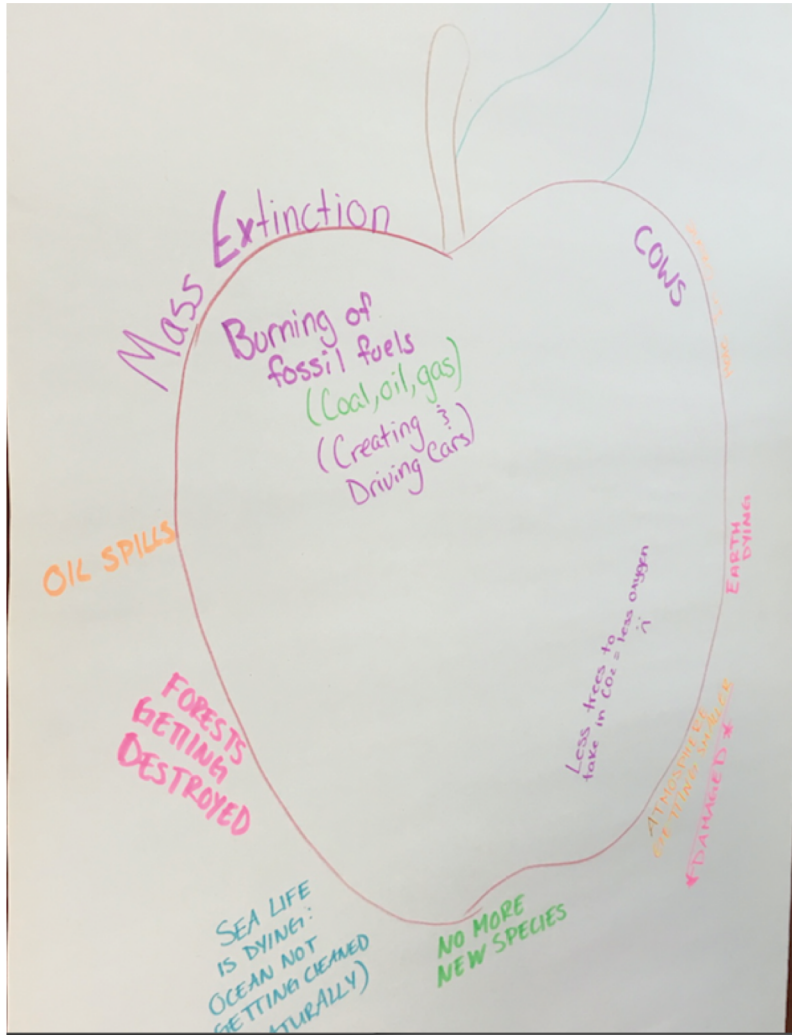 Mass Extinction
COWS
Burning of
fossil fuels
(Coal, oil, gas)
(Creating &
Driving Cars)
OIL SPILLS
EARTH
DYING
Less trees to
take in CO2 = less oxygen
:(
FORESTS
GETTING
DESTROYED
ATMOSPHERE
GETTING
*DAMAGED*
SEA LIFE
IS DYING:
OCEAN NOT
GETTING CLEANED
NATURALLY)
NO MORE
NEW SPECIES